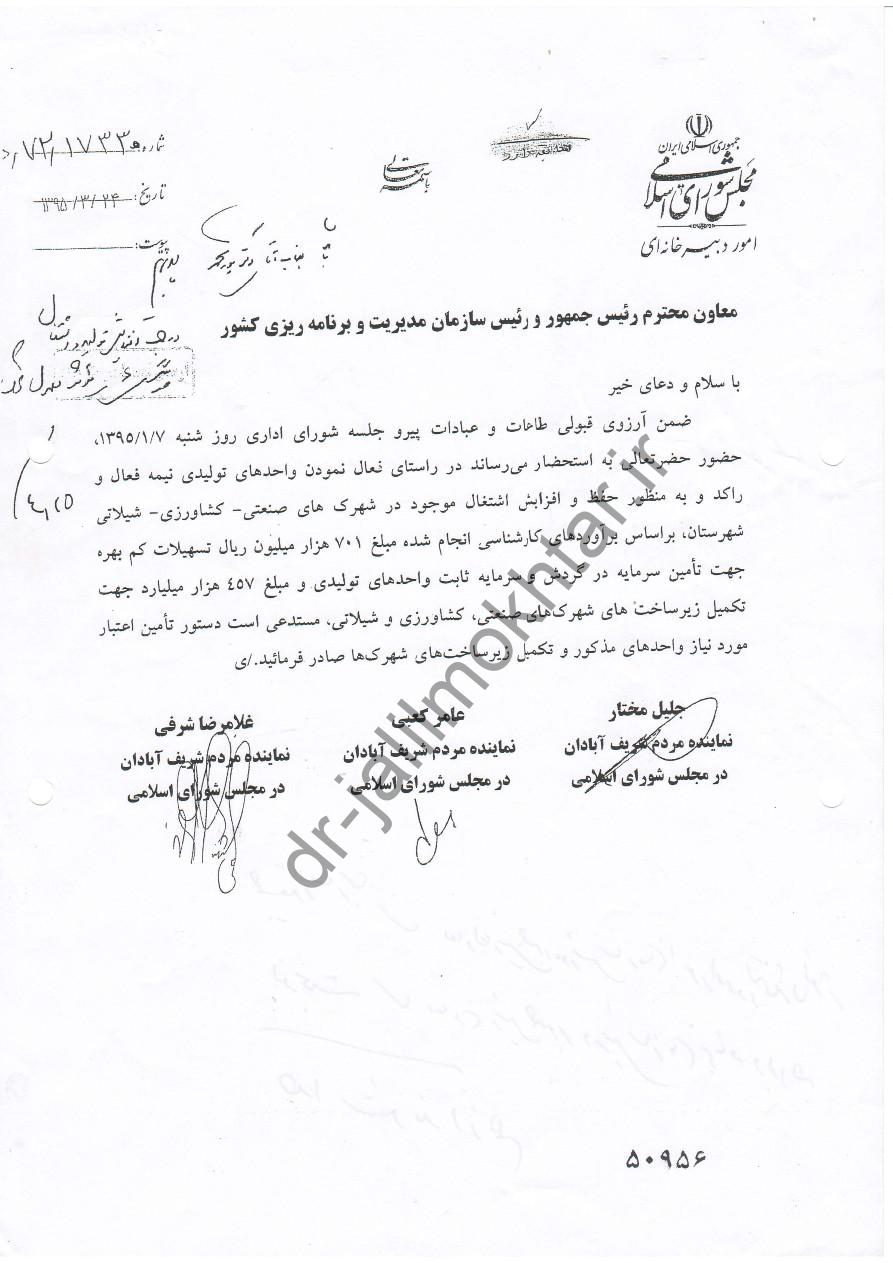 جمهوری اسلامی ایران
مجلس شورای اسلامی
امور دبیرخانه‌ای
باسمه تعالی
شماره:
تاریخ: ۱۳۹۵/۳/۲۴
پیوست:
معاون محترم رئیس جمهور و رئیس سازمان مدیریت و برنامه ریزی کشور
با سلام و دعای خیر
ضمن آرزوی قبولی طاعات و عبادات پیرو جلسه شورای اداری روز شنبه ۱۳۹۵/۱/۷،
حضور حضرتعالی به استحضار می‌رساند در راستای فعال نمودن واحدهای تولیدی نیمه فعال و
راکد و به منظور حفظ و افزایش اشتغال موجود در شهرک های صنعتی- کشاورزی- شیلاتی
شهرستان، براساس برآوردهای کارشناسی انجام شده مبلغ ۷۰۱ هزار میلیون ریال تسهیلات کم بهره
جهت تأمین سرمایه در گردش و سرمایه ثابت واحدهای تولیدی و مبلغ ۴۵۷ هزار میلیارد جهت
تکمیل زیرساخت های شهرک‌های صنعتی، کشاورزی و شیلاتی، مستدعی است دستور تأمین اعتبار
مورد نیاز واحدهای مذکور و تکمیل زیرساخت‌های شهرک‌ها صادر فرمائید./ی
جلیل مختار
نماینده مردم شریف آبادان
در مجلس شورای اسلامی
عامر کعبی
نماینده مردم شریف آبادان
در مجلس شورای اسلامی
غلامرضا شرفی
نماینده مردم شریف آبادان
در مجلس شورای اسلامی
dr-jalilmokhtar.ir
۵۰۹۵۶